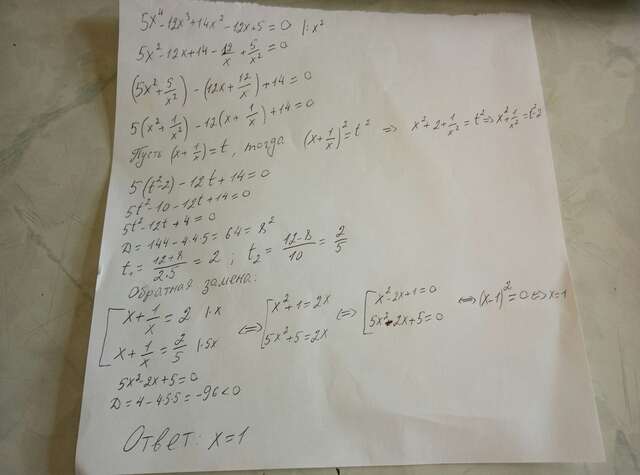 5x⁴-12x³+14x²-12x+5=0 |:x²
5x²-12x+14-12/x+5/x²=0
(5x²+5/x²)-(12x+12/x)+14=0
5(x²+1/x²)-12(x+1/x)+14=0
Пусть (x+1/x)=t, тогда (x+1/x)²=t² => x²+2+1/x²=t²=>x²+1/x²=t²-2
5(t²-2)-12t+14=0
5t²-10-12t+14=0
5t²-12t+4=0
D=144-4·4·5=64=8²
t₁=(12+8)/(2·5)=2; t₂=(12-8)/10=2/5
Обратная замена:
[x+1/x=2 |·x <=> [x²+1=2x <=> [x²-2x+1=0 <=>(x-1)²=0<=>x=1
x+1/x=2/5 |·5x 5x²+5=2x 5x²-2x+5=0
5x²-2x+5=0
D=4-4·5·5=-96<0
Ответ: x=1